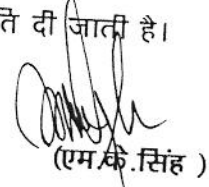 ति दी जाती है।
(एम.के.सिंह )